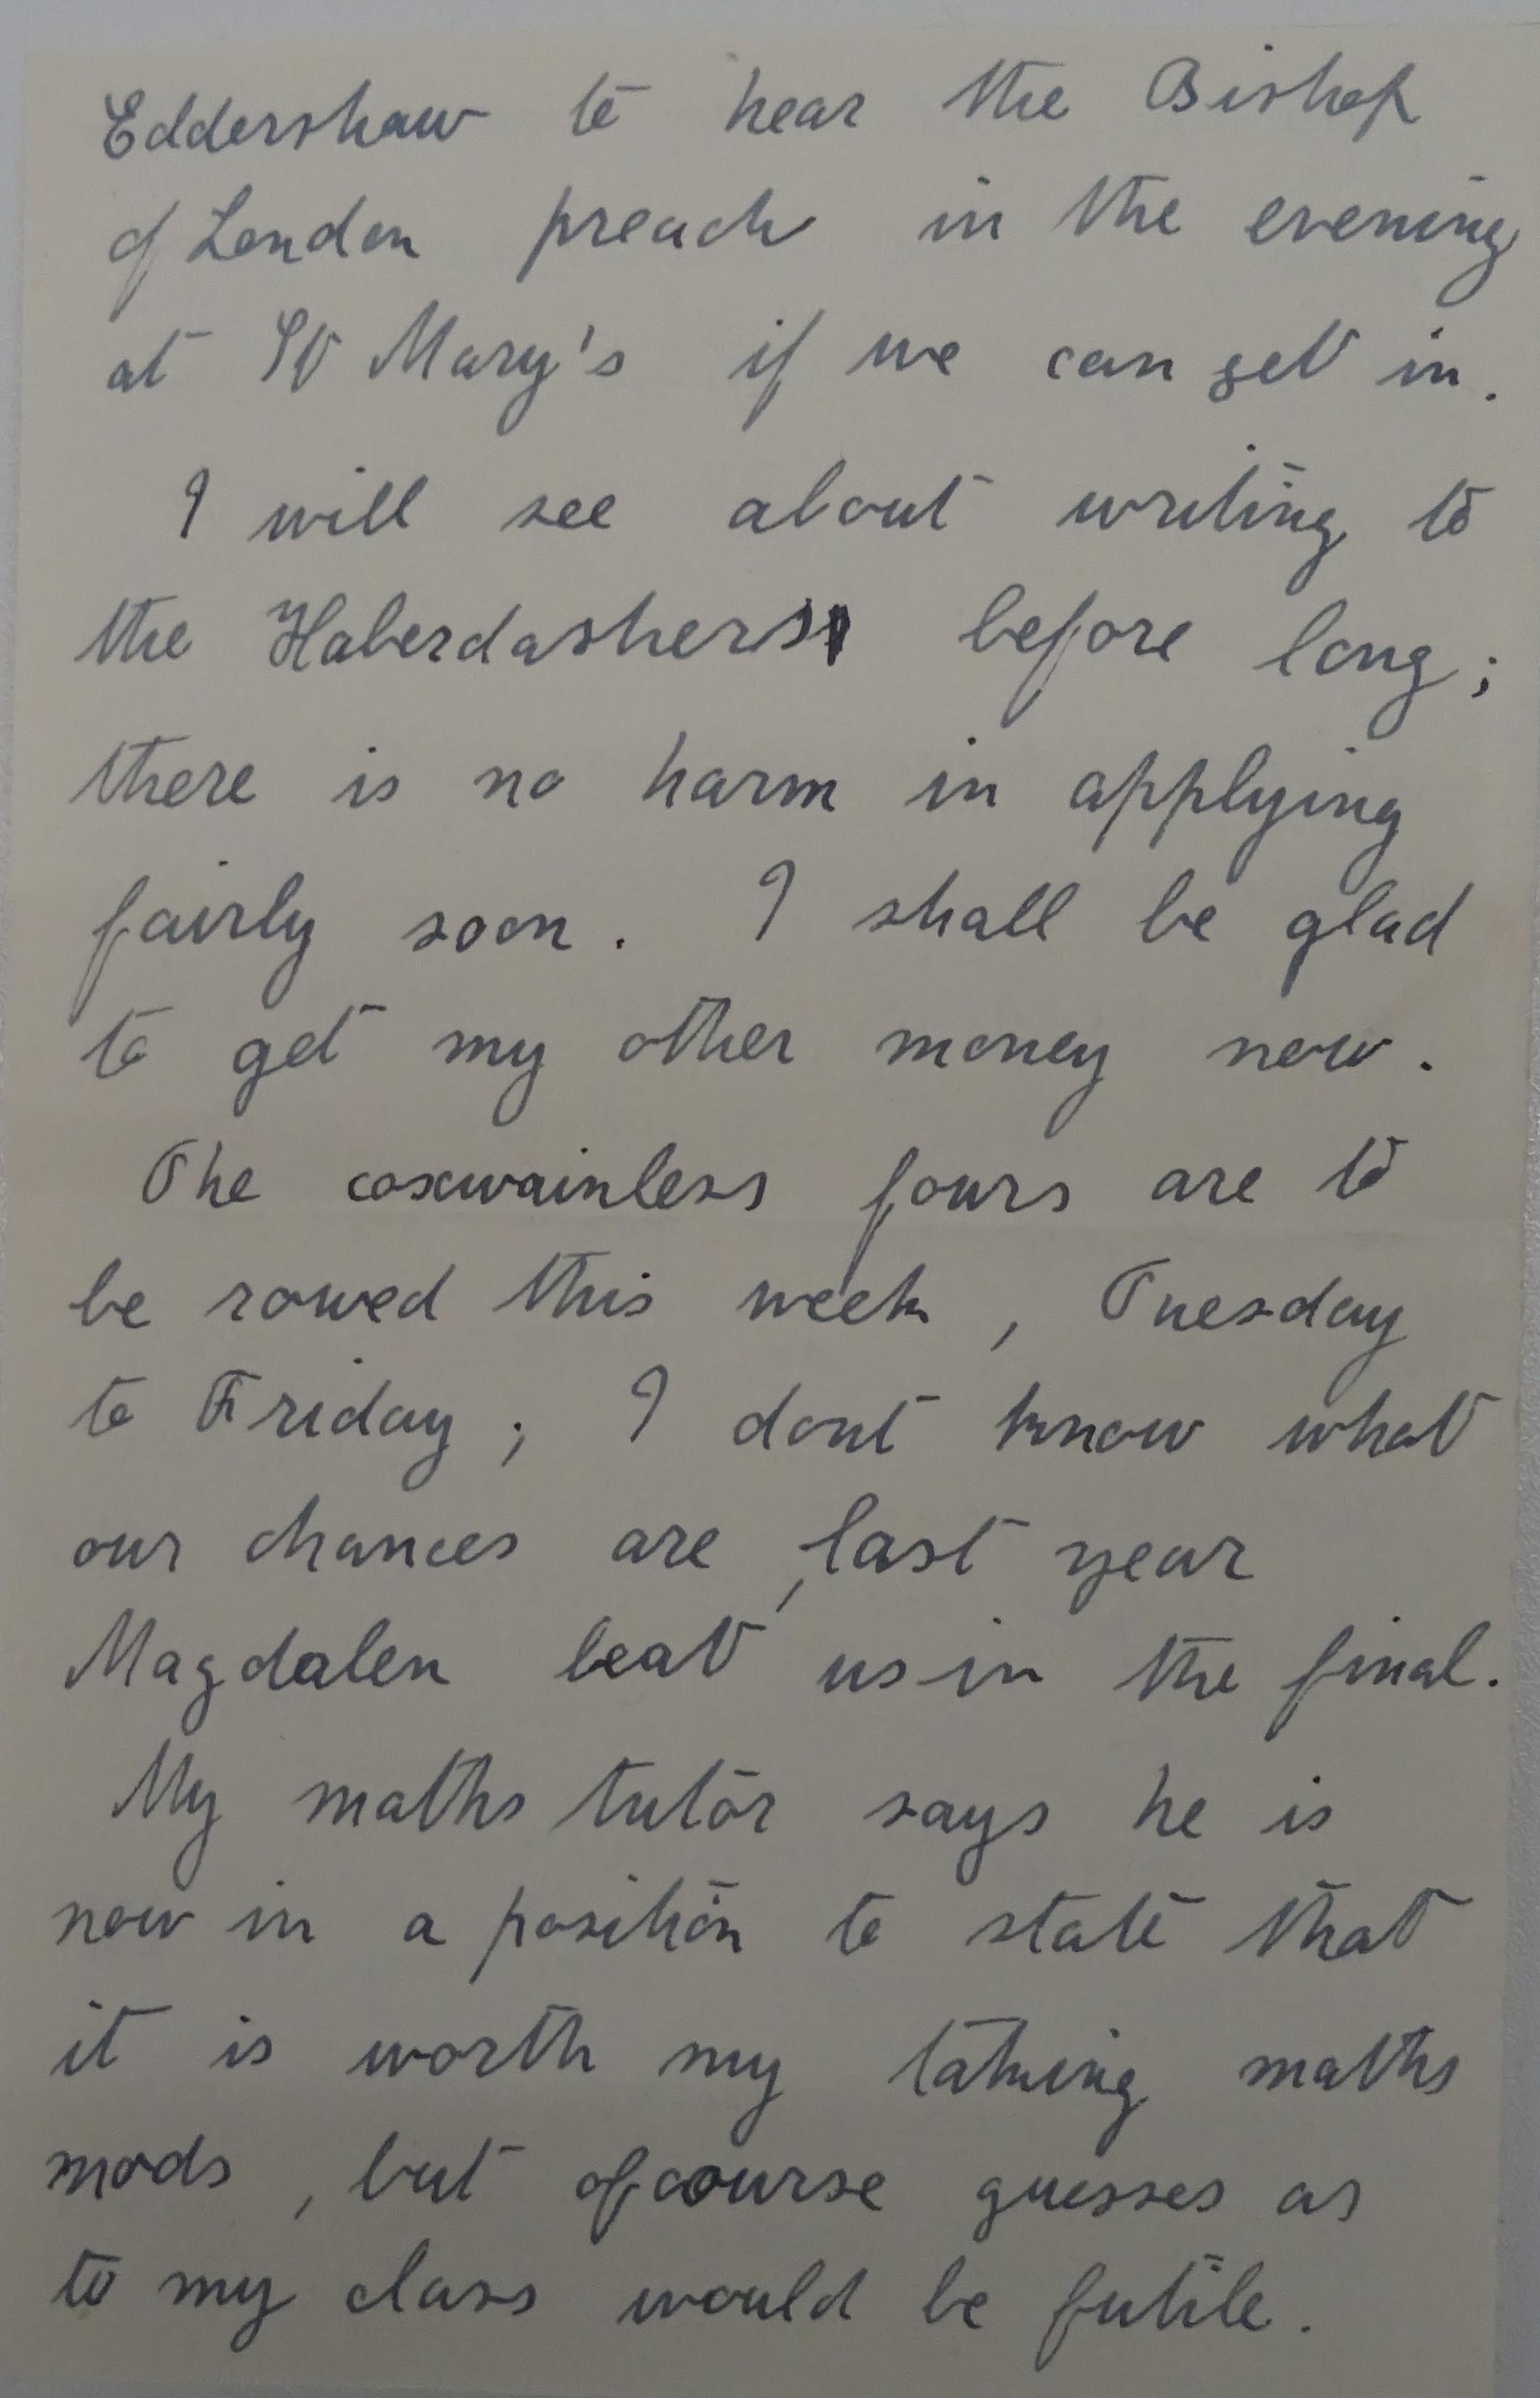 Eddershaw to hear the Bishop
of London preach in the evening
at St Mary's if we can get in.
I will see about writing to
the Haberdashers before long;
there is no harm in applying
fairly soon. I shall be glad
to get my other money now.
The coxwainless fours are to
be rowed this week, Tuesday
to Friday; I dont know what
our chances are, last year
Magdalen beat us in the final.
My maths tutor says he is
now in a position to state that
it is worth my taking maths
mods, but of course guesses as
to my class would be futile.